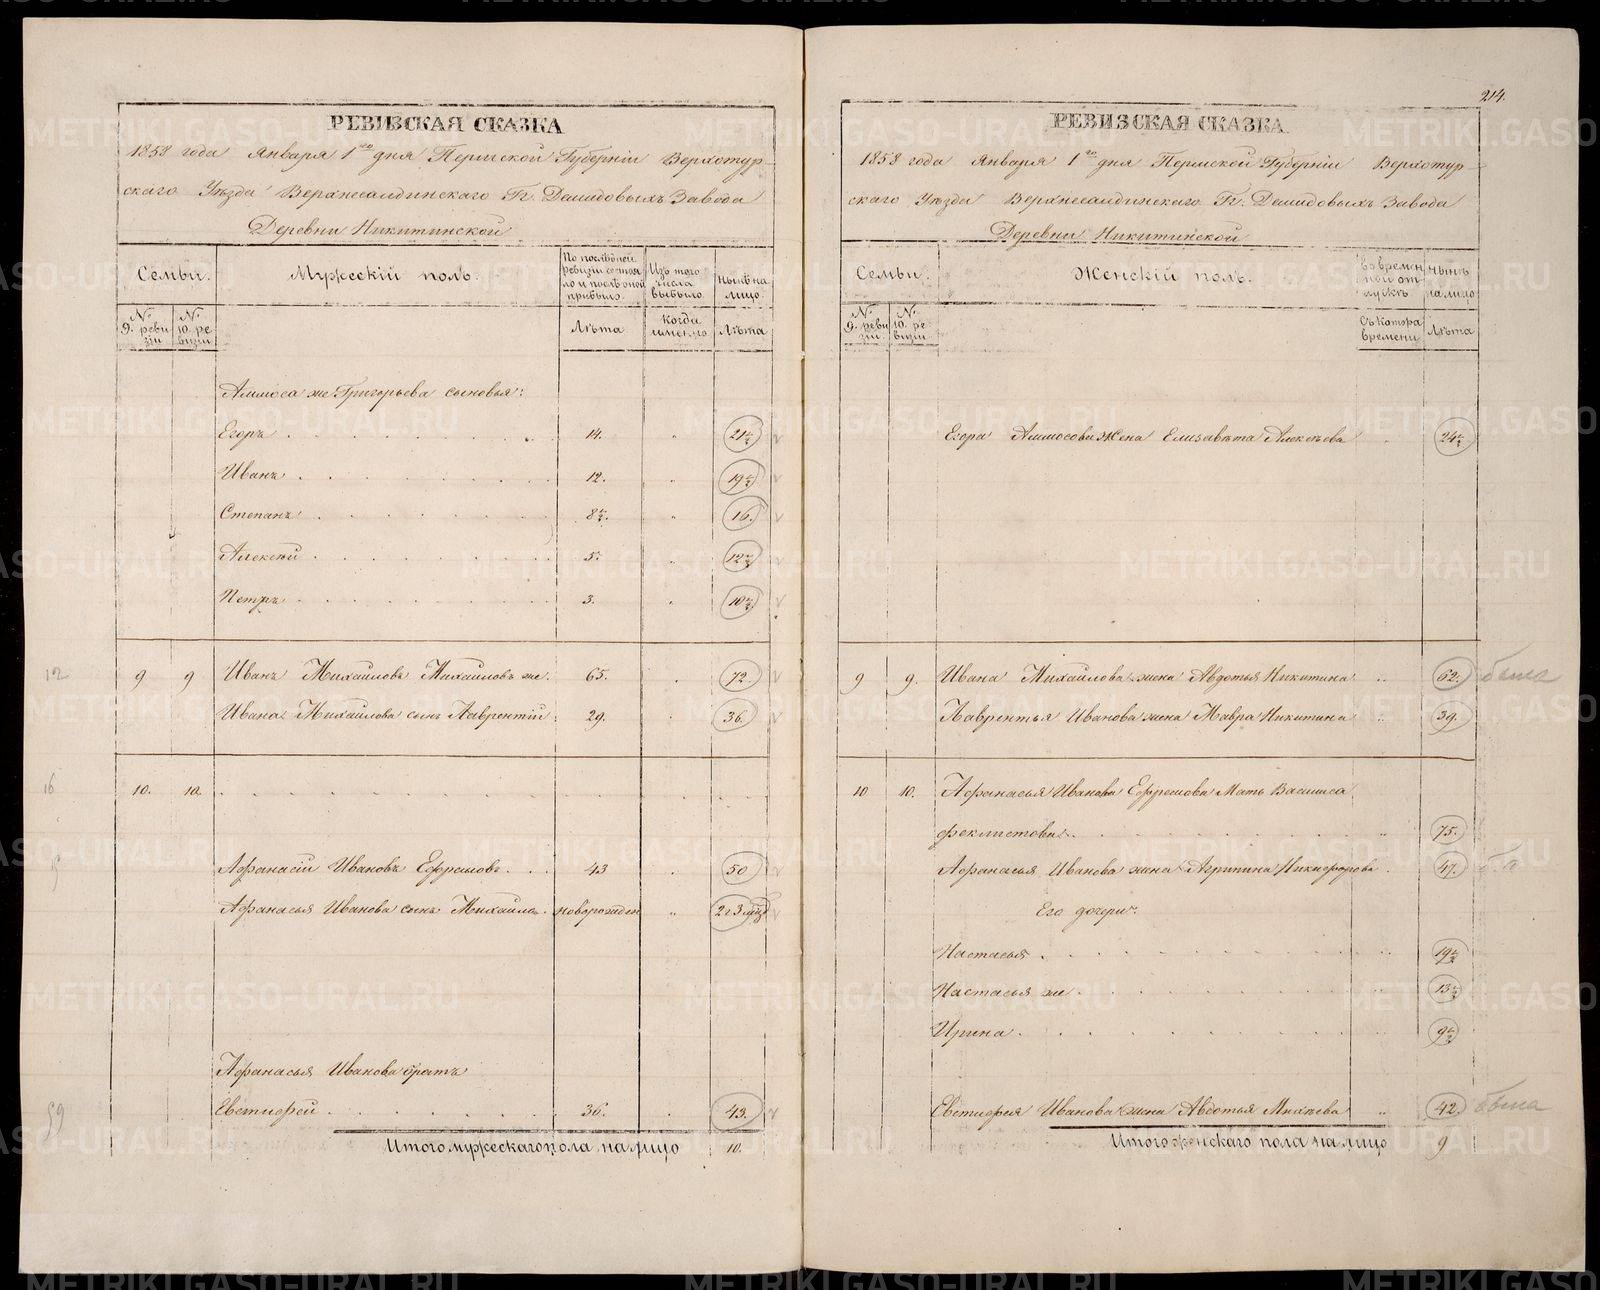 214.
РЕВИЗСКАЯ СКАЗКА
1858 года Января 1го дня Пермской Губерніи Верхотур-
скаго Уѣзда Верхнесалдинскаго Гг. Демидовыхъ Завода
Деревни Никитинской
Семьи.
Мужескій полъ.
По послѣдней ревизіи состояло и послѣ оной прибыло.
Изъ того числа выбыло
Нынѣ на лицо
№ 9. ревизіи
№ 10. ревизіи
Лѣта
Когда именно
Лѣта
Аммоса же Григорьева сыновья:
Егоръ 14. " 21½
Иванъ 12. " 19½
Степанъ 8½. " 16.
Алексѣй 5. " 12½
Петръ 3. " 10½
12 9 9 Иванъ Михайловъ Михайловъ же. 65. " 72.
Ивана Михайлова сынъ Лаврентій: 29. " 36.
16 10. 10.
Афанасій Ивановъ Ефремовъ 43 " 50
Афанасья Иванова сынъ Михайло новорожден " 2 и 3 мѣс
Афанасья Иванова братъ
59 Евстифей 36. " 43.
Итого мужескаго пола на лицо 10.
РЕВИЗСКАЯ СКАЗКА
1858 года Января 1го дня Пермской Губерніи Верхотур-
скаго Уѣзда Верхнесалдинскаго Гг. Демидовыхъ Завода
Деревни Никитинской
Семьи.
Женскій полъ.
Во временной отлускѣ
Нынѣ на лицо
№ 9. ревизіи
№ 10. ревизіи
Съ котора времени
Лѣта
Егора Аммосова жена Елизавѣта Алексѣева " 24½
9 9. Ивана Михайлова жена Авдотья Никитина " 62.
Лаврентья Иванова жена Мавра Никитина " 39.
10 10. Афанасья Иванова Ефремова Мать Василиса
Феклистова " 75.
Афанасья Иванова жена Агрипина Никифорова 47.
Его дочери:
Настасья 19½
Настасья же 13½
Ирина 9½
Евстифея Иванова жена Авдотья Михѣева " 42.
Итого женскаго пола на лицо 9
METRIKI.GASO-URAL.RU